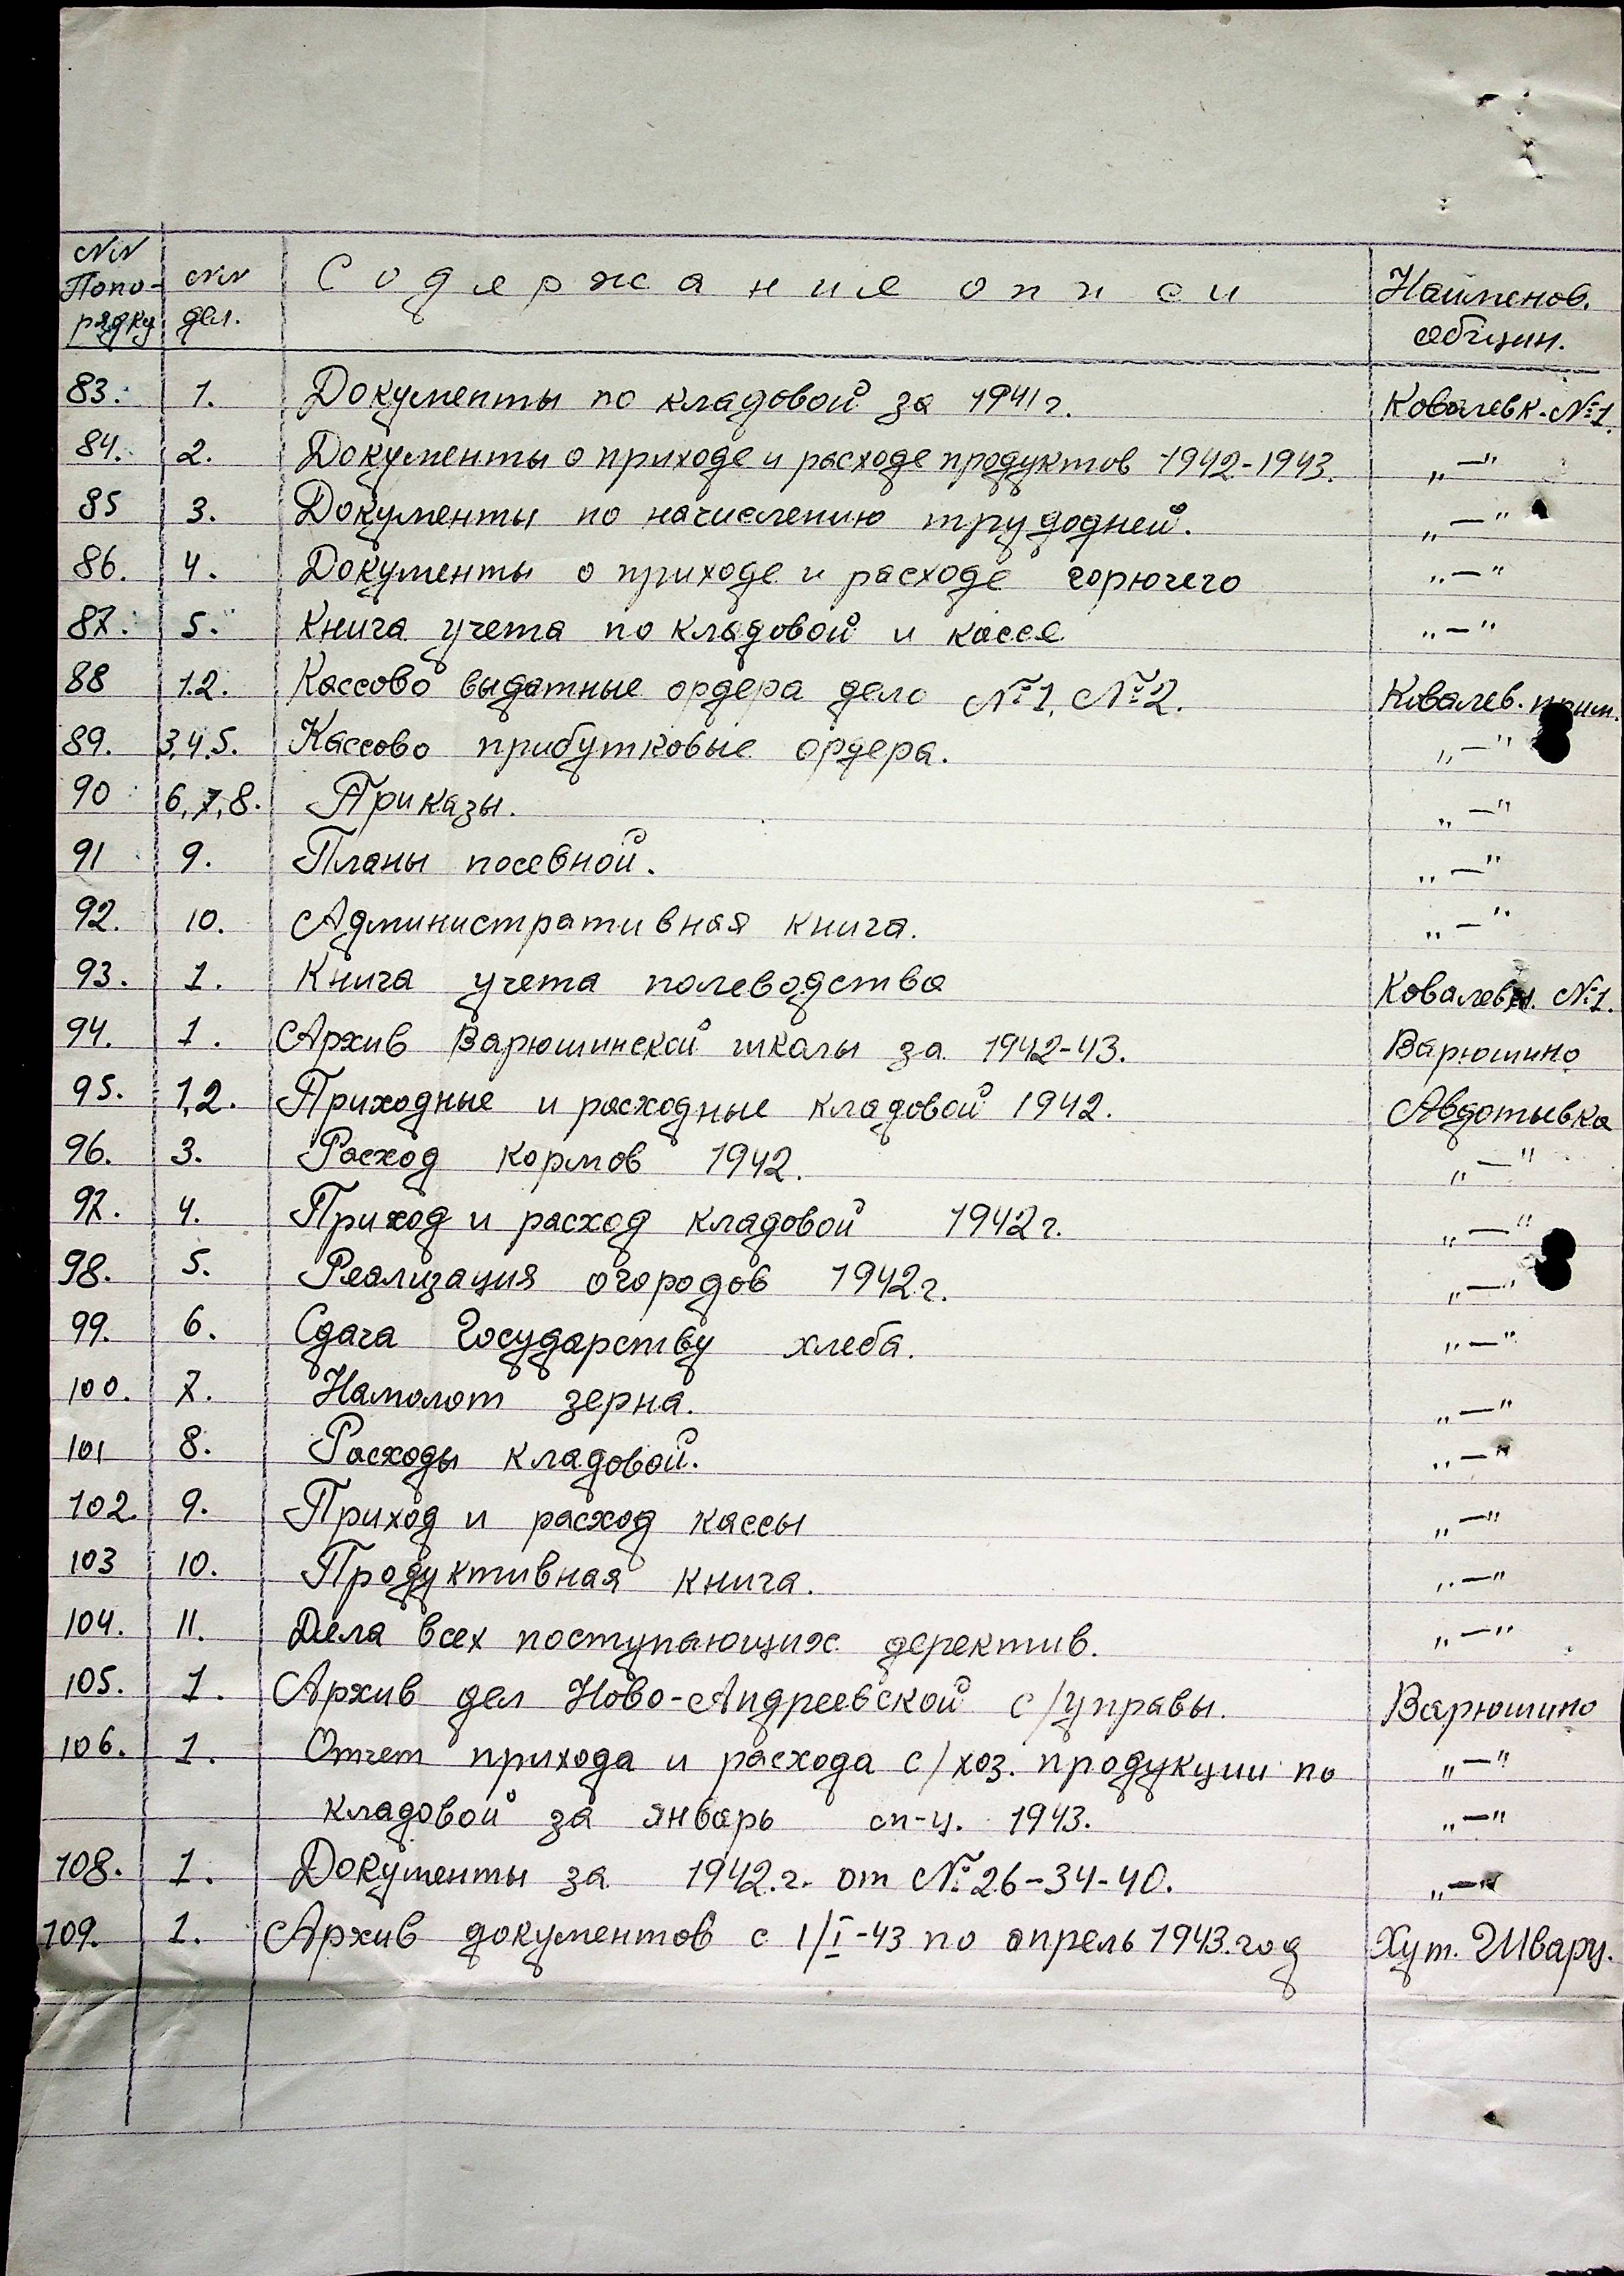 NN Попо-рядку NN дел. Содержание описи Наименов. общин.
83. 1. Документы по кладовой за 1941 г. Ковалевк. №1.
84. 2. Документы о приходе и расходе продуктов 1942-1943. „—"
85 3. Документы по начислению трудодней. „—"
86. 4. Документы о приходе и расходе горючего „—"
87. 5. Книга учета по кладовой и кассе „—"
88 1.2. Кассово выдатные ордера дело №1, №2. Ковалев. прим.
89. 3,4.5. Кассово прибутковые ордера. „—"
90 6,7,8. Приказы. „—"
91 9. Планы посевной. „—"
92. 10. Административная книга. „—"
93. 1. Книга учета полеводства Ковалевк. №1.
94. 1. Архив Варюшинской школы за 1942-43. Варюшино
95. 1,2. Приходные и расходные кладовой 1942. Авдотьевка
96. 3. Расход кормов 1942. „—"
97. 4. Приход и расход кладовой 1942 г. „—"
98. 5. Реализация огородов 1942 г. „—"
99. 6. Сдача Государству хлеба. „—"
100. 7. Намолот зерна. „—"
101 8. Расходы кладовой. „—"
102. 9. Приход и расход кассы „—"
103 10. Продуктивная книга. „—"
104. 11. Дела всех поступающих деректив. „—"
105. 1. Архив дел Ново-Андреевской с/управы. Варюшино
106. 1. Отчет прихода и расхода с/хоз. продукции по „—"
кладовой за январь 1943. „—"
108. 1. Документы за 1942. г. от №26-34-40. „—"
109. 1. Архив документов с 1/I-43 по апрель 1943. год Хут. Швару.